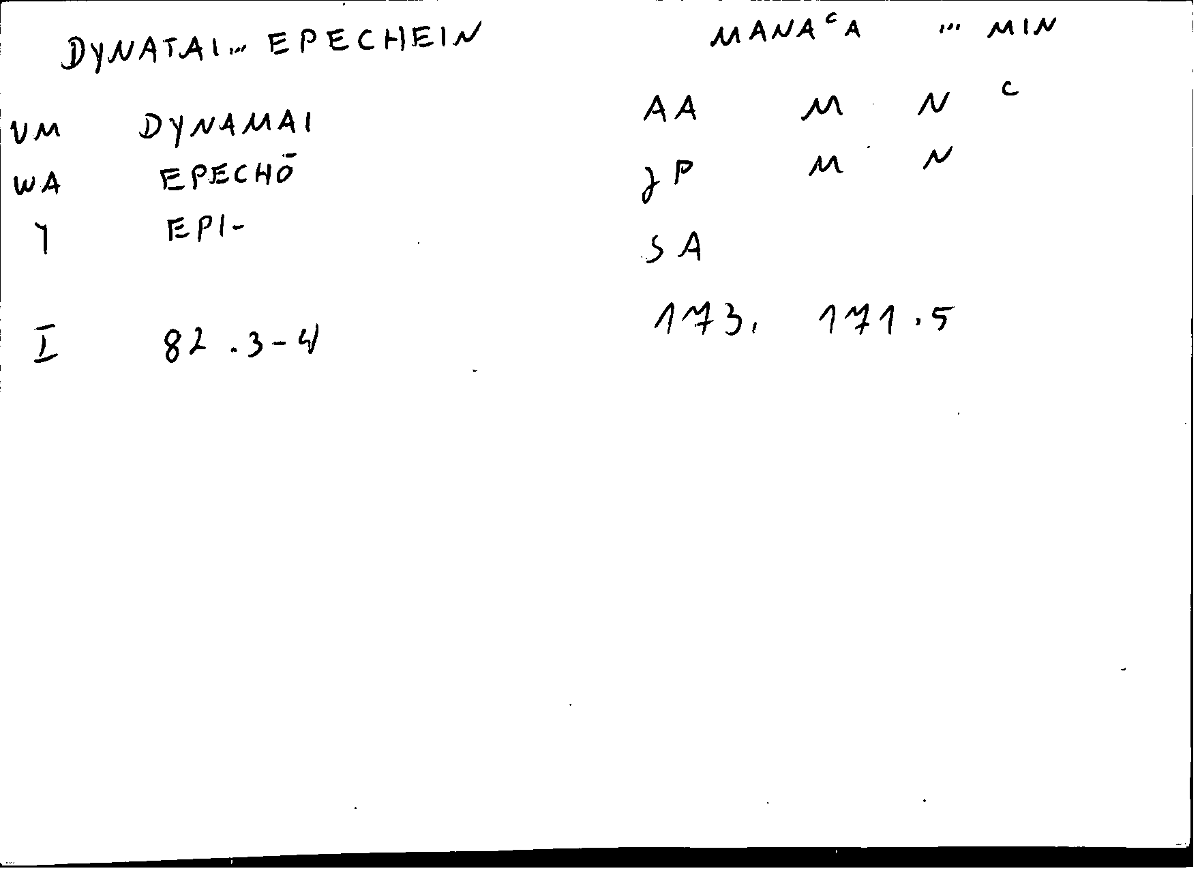 DYNATAI... EPECHEIN MANAᶜA ... MIN
VM DYNAMAI AA M N ᶜ
WA EPECHŌ JP M N
1 EPI- SA
I 82.3-4 173, 171.5